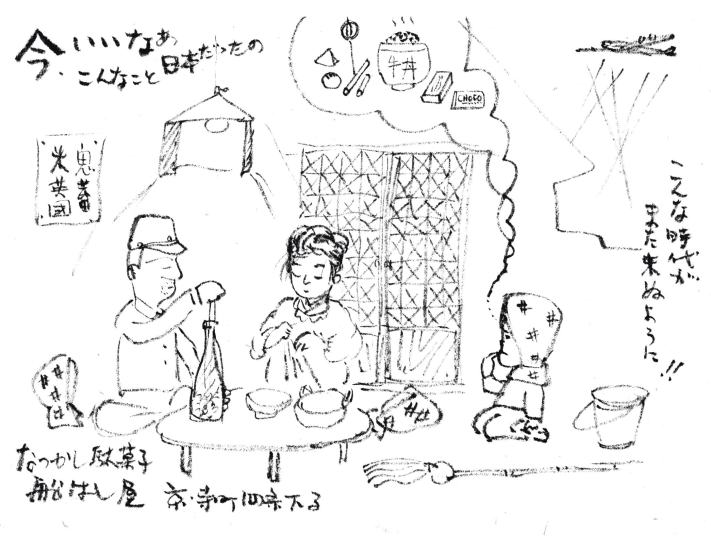 今、いいなぁ
こんなこと日本だったの
牛丼
CHOCO
鬼畜
米英国
こんな時代が
また来ぬように!!
なつかし駄菓子
船はし屋 京・寺町四条下る